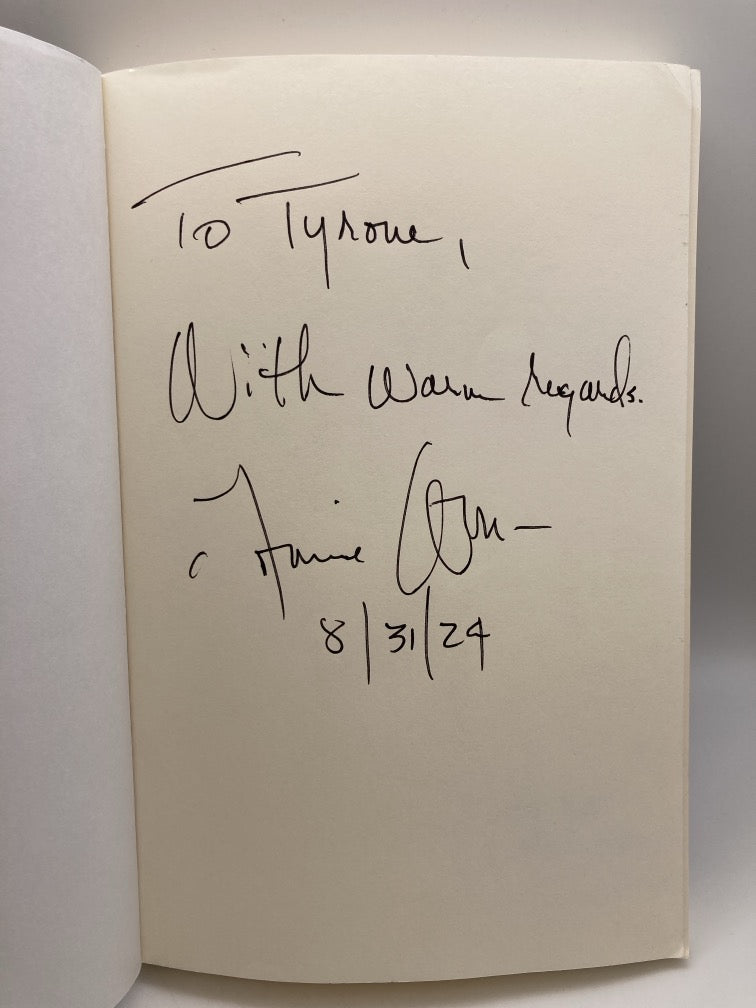 To Tyrone,
With warm regards.
8/31/24